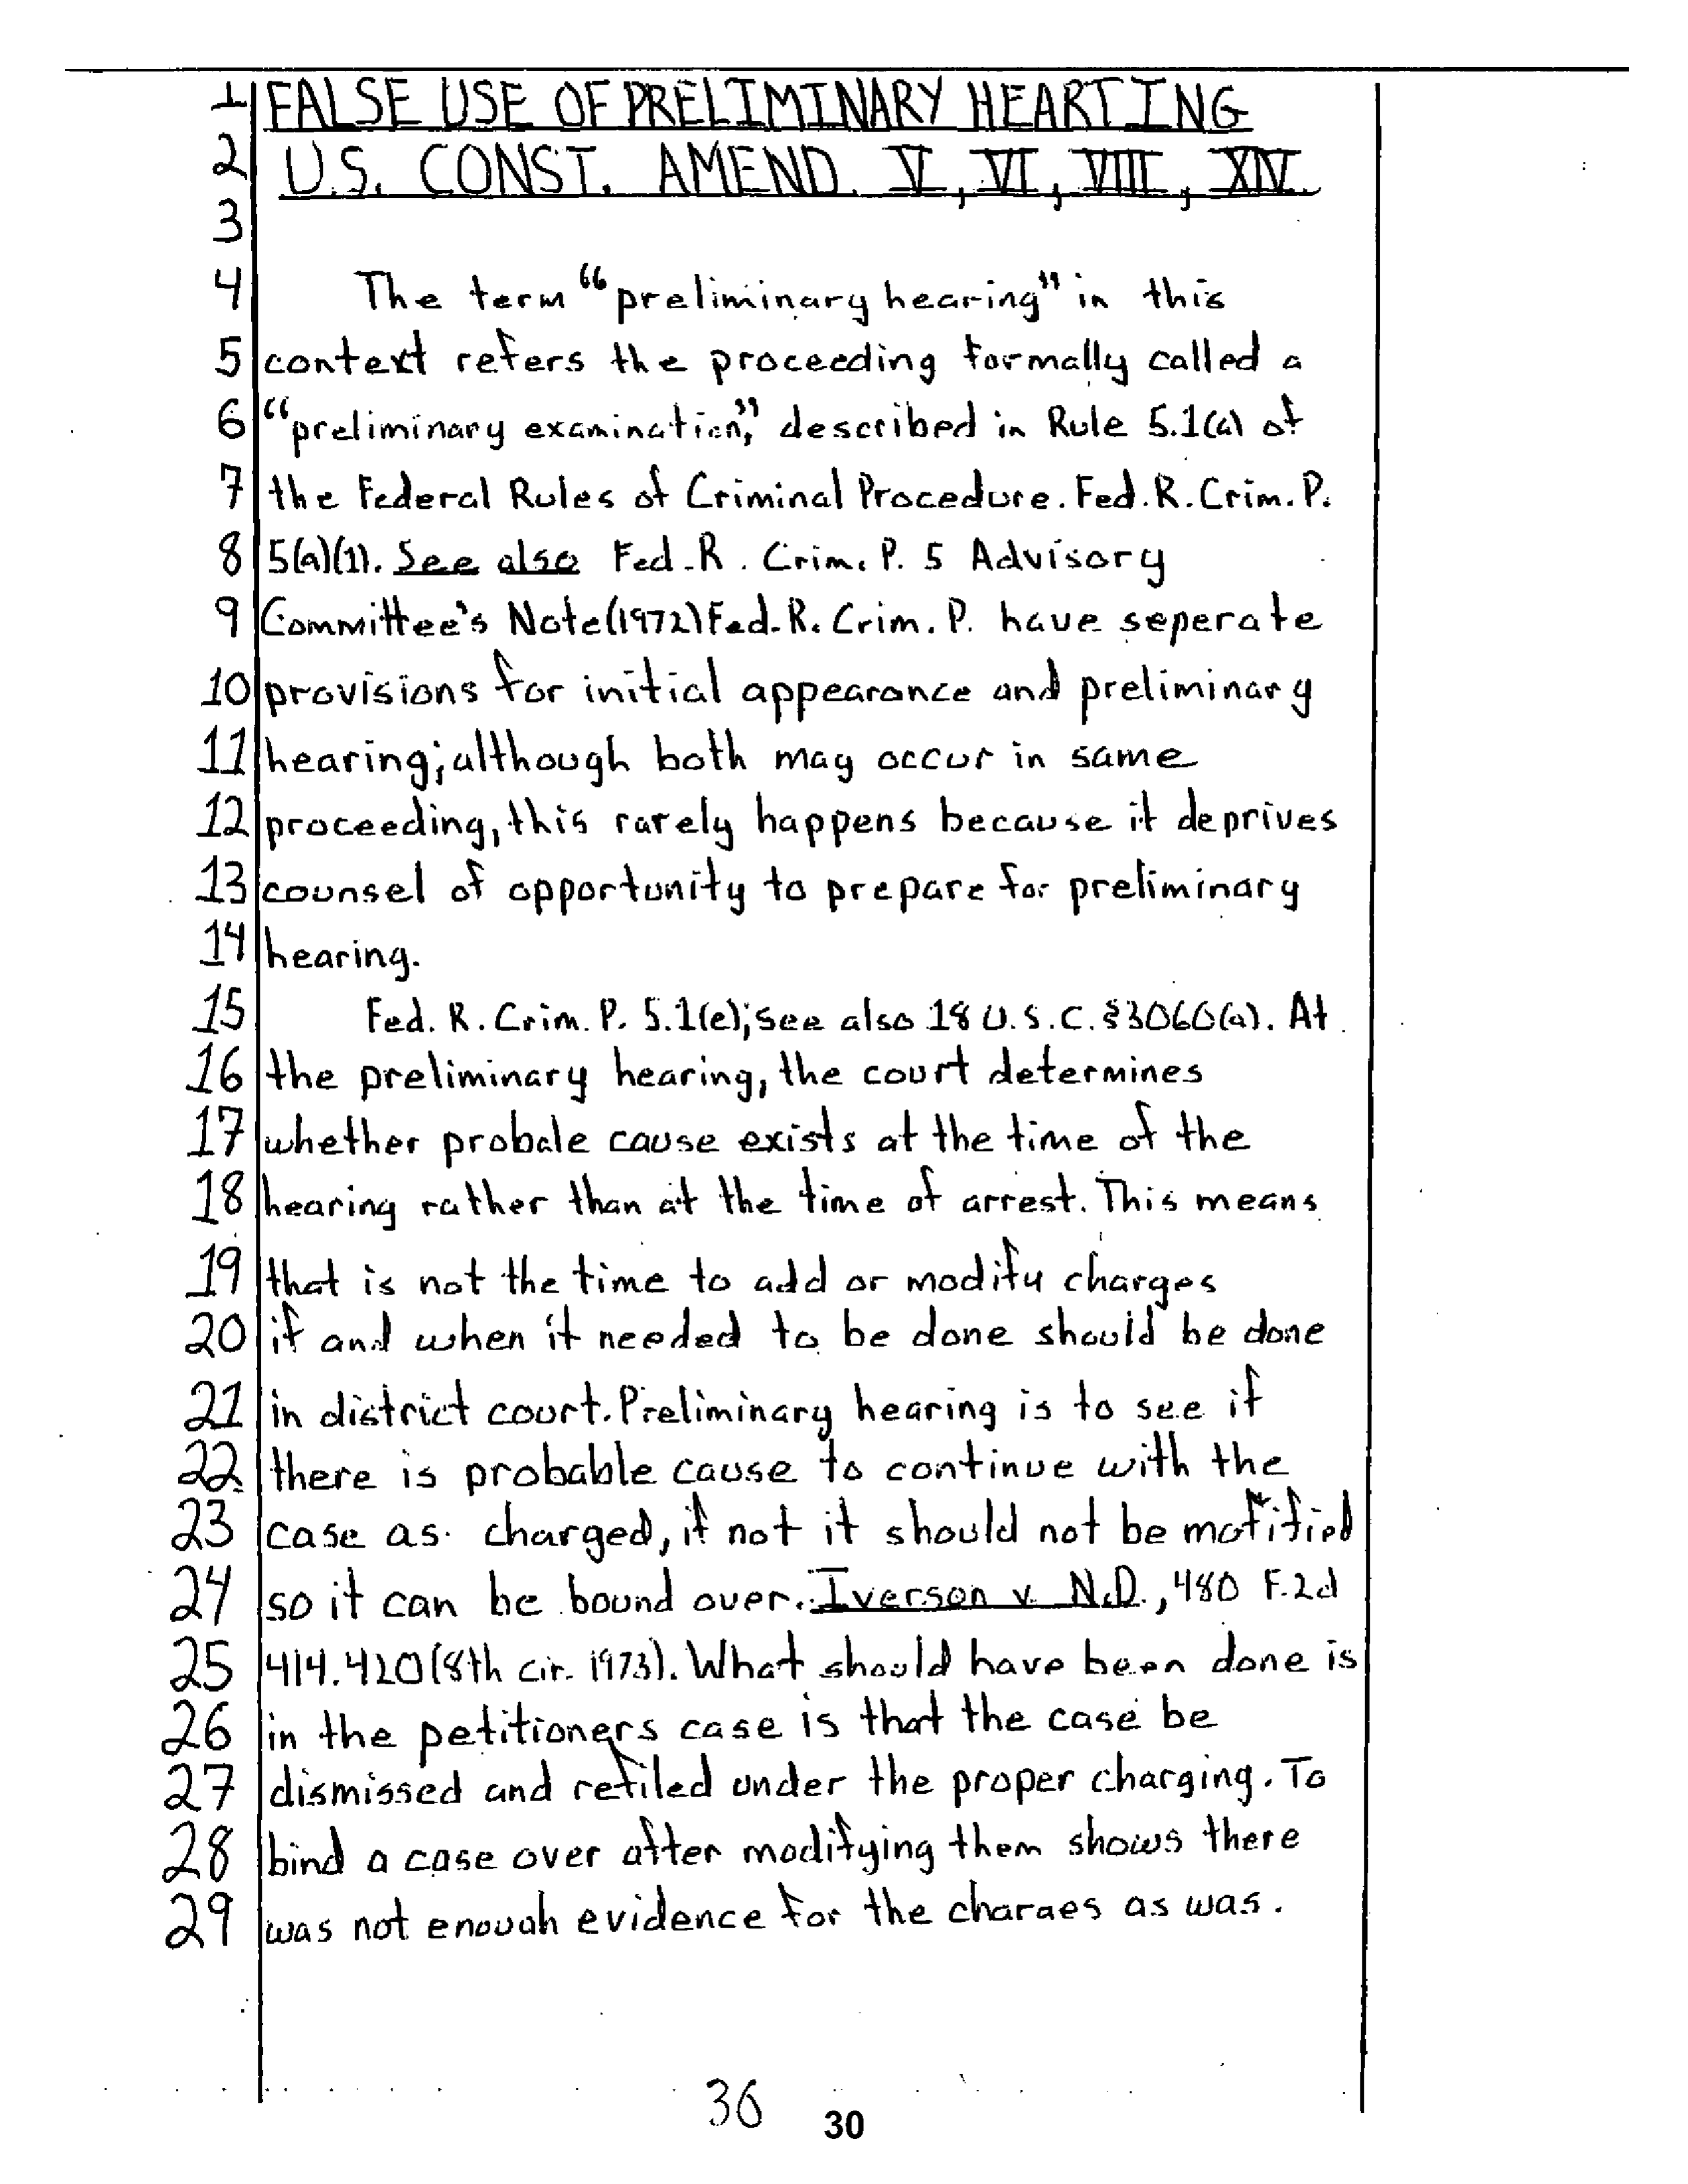 1 FALSE USE OF PRELIMINARY HEARTING
2 U.S. CONST. AMEND. V, VI, VIII, XIV.
3
4 The term “preliminary hearing” in this
5 context refers the proceeding formally called a
6 “preliminary examination,” described in Rule 5.1(a) of
7 the Federal Rules of Criminal Procedure. Fed.R.Crim.P.
8 5(a)(1). See also Fed.R. Crim. P. 5 Advisory
9 Committee's Note(1972)Fed.R. Crim. P. have seperate
10 provisions for initial appearance and preliminary
11 hearing; although both may occur in same
12 proceeding, this rarely happens because it deprives
13 counsel of opportunity to prepare for preliminary
14 hearing.
15 Fed. R. Crim. P. 5.1(e); see also 18 U.S.C. §3060(a). At
16 the preliminary hearing, the court determines
17 whether probale cause exists at the time of the
18 hearing rather than at the time of arrest. This means
19 that is not the time to add or modify charges
20 if and when it needed to be done should be done
21 in district court. Preliminary hearing is to see if
22 there is probable cause to continue with the
23 case as charged, if not it should not be motified
24 so it can be bound over. Iverson v. N.D., 480 F.2d
25 414.420(8th cir. 1973). What should have been done is
26 in the petitioners case is that the case be
27 dismissed and refiled under the proper charging. To
28 bind a case over after modifying them shows there
29 was not enough evidence for the charges as was.
36
30